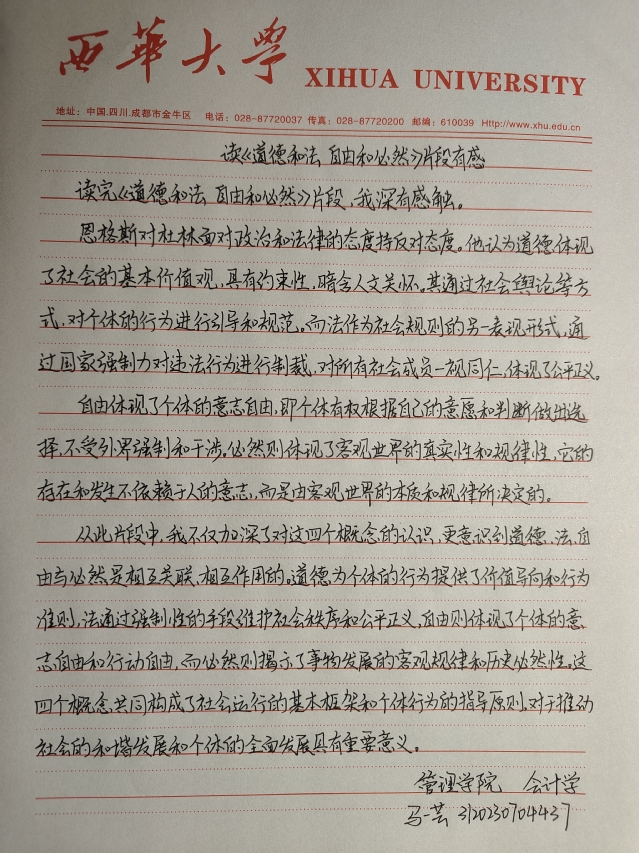 西華大學 XIHUA UNIVERSITY
地址：中国.四川.成都市金牛区 电话：028-87720037 传真：028-87720200 邮编：610039 Http://www.xhu.edu.cn
读《道德和法 自由和必然》片段有感
读完《道德和法 自由和必然》片段，我深有感触。
恩格斯对杜林面对政治和法律的态度持反对态度。他认为道德体现
了社会的基本价值观，具有约束性，暗含人文关怀。其通过社会舆论等方
式，对个体的行为进行引导和规范。而法作为社会规则的另一表现形式，通
过国家强制力对违法行为进行制裁，对所有社会成员一视同仁，体现了公平正义。
自由体现了个体的意志自由，即个体有权根据自己的意愿和判断做出选
择，不受外界强制和干涉。必然则体现了客观世界的真实性和规律性，它的
存在和发生不依赖于人的意志，而是由客观世界的本质和规律所决定的。
从此片段中，我不仅加深了对这四个概念的认识，更意识到道德、法、自
由与必然是相互关联、相互作用的。道德为个体的行为提供了价值导向和行为
准则，法通过强制性的手段维护社会秩序和公平正义，自由则体现了个体的意
志自由和行动自由，而必然则揭示了事物发展的客观规律和历史必然性。这
四个概念共同构成了社会运行的基本框架和个体行为的指导原则，对于推动
社会的和谐发展和个体的全面发展具有重要意义。
管理学院 会计学
马一芸 3120230704437